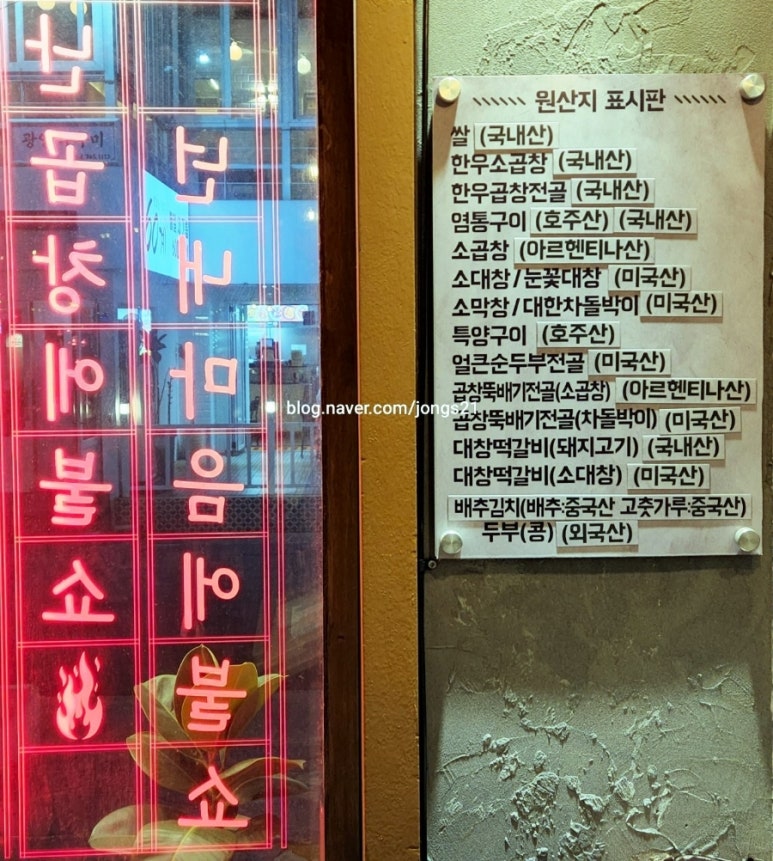 넌내마음에불쇼
난곱창에불쇼
원산지 표시판
쌀 (국내산)
한우소곱창 (국내산)
한우곱창전골 (국내산)
염통구이 (호주산) (국내산)
소곱창 (아르헨티나산)
소대창/눈꽃대창 (미국산)
소막창/대한차돌박이 (미국산)
특양구이 (호주산)
얼큰순두부전골 (미국산)
곱창뚝배기전골(소곱창) (아르헨티나산)
곱창뚝배기전골(차돌박이) (미국산)
대창떡갈비(돼지고기) (국내산)
대창떡갈비(소대창) (미국산)
배추김치(배추:중국산 고춧가루:중국산)
두부(콩) (외국산)
blog.naver.com/jongs21